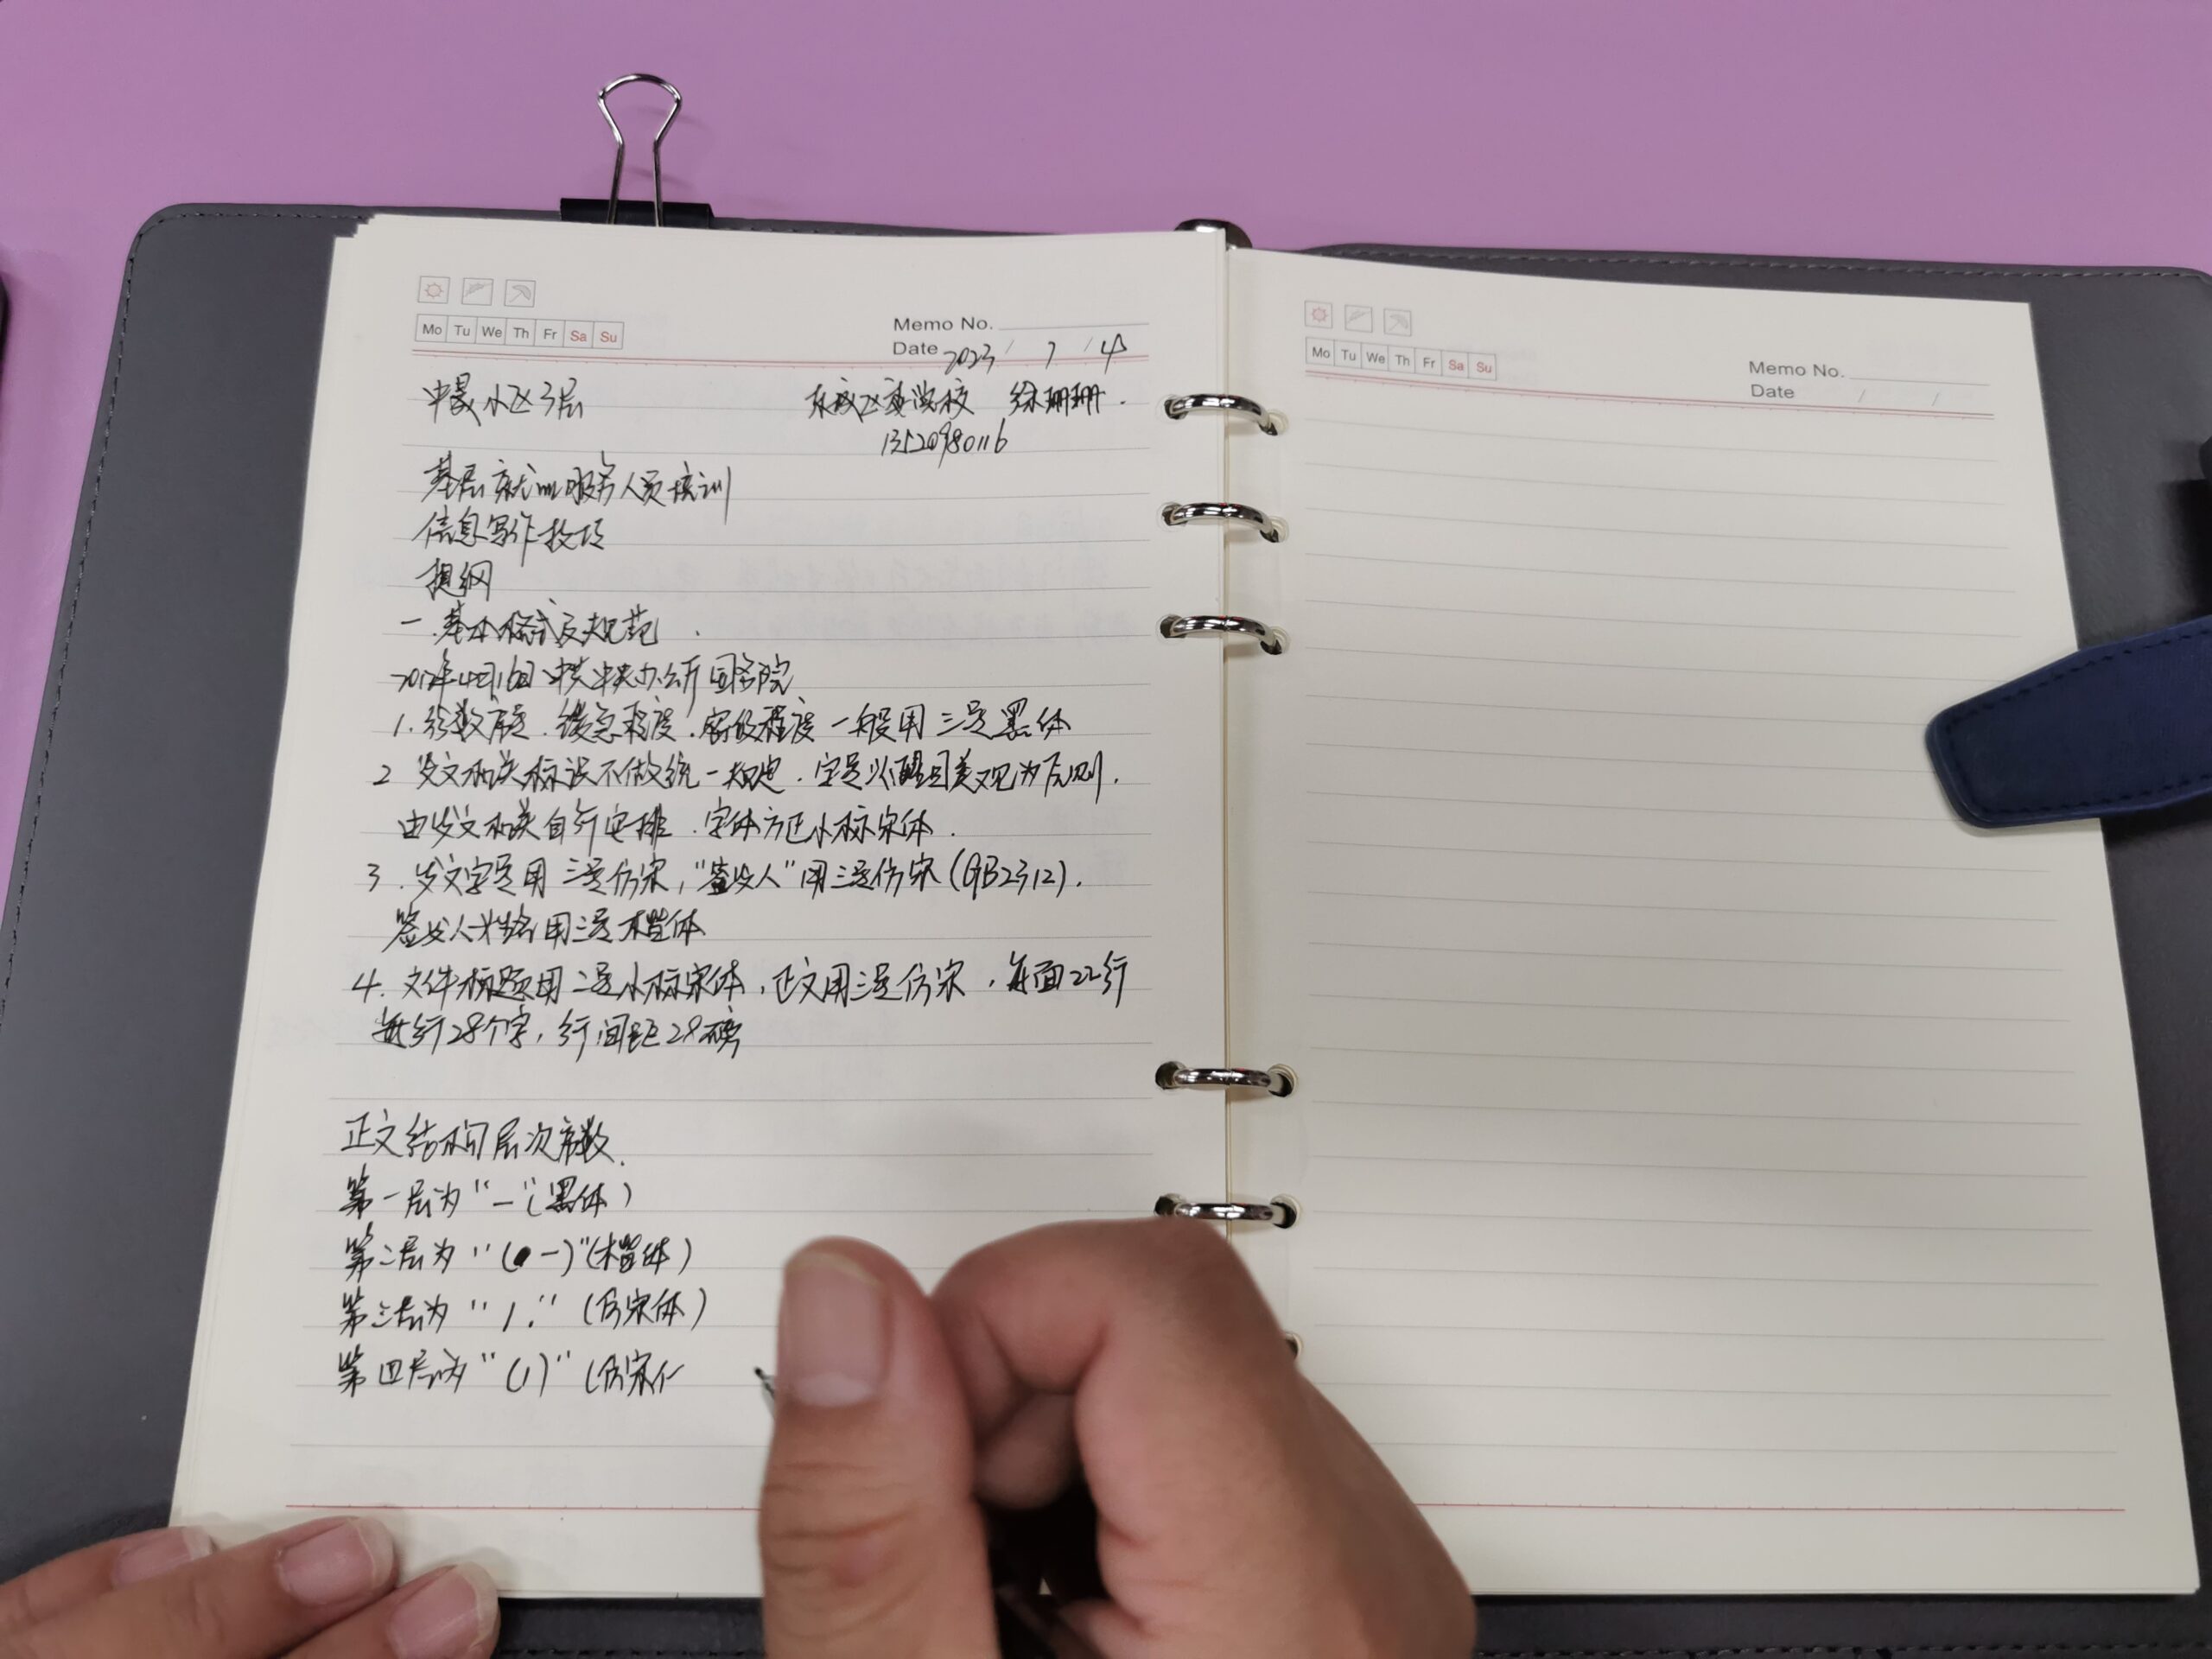 Mo Tu We Th Fr Sa Su
Memo No.
Date 2023 / 7 / 4
中晟小区3层 东城区委党校 徐珊珊.
13520980116
基层就业服务人员培训
信息写作技巧
提纲
一.基本格式及规范.
2012年4月16日 中共中央办公厅 国务院
1. 份数序号.缓急程度.密级程度 一般用 三号黑体
2 发文机关标识不做统一规定.字号以醒目美观为原则.
由发文机关自行安排.字体方正小标宋体.
3.发文字号用三号仿宋,"签发人"用三号仿宋(GB2312).
签发人姓名用三号楷体
4. 文件标题用二号小标宋体,正文用三号仿宋,每面22行
每行28个字,行间距28磅
正文结构层次序数.
第一层为"一"(黑体)
第二层为"(一)"(楷体)
第三层为"1."(仿宋体)
第四层为"(1)"(仿宋
Mo Tu We Th Fr Sa Su
Memo No.
Date / /